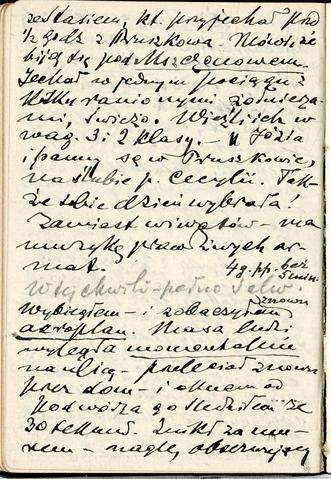 ze Stasiem, kt. przyjechał przed
1/2 godz z Pruszkowa. Mówi, że
biją się pod Mszczonowem.
Jechał w jednym pociągu z
kilku rannymi żołnierza-
mi, świeżo. Wieźli ich w
wag. 3 i 2 klasy. — Józia
i panny są w Pruszkowie,
na ślubie p. Cecylii. Tak-
że sobie dzień wybrała!
Zamiast wiwatów — ma
muzykę prawdziwych ar-
mat.
4 g. pp. bez
5 min.
W tej chwili — pełno
wybiegłem — i zobaczyłem znowu
aeroplan. Masa ludzi
wyległa momentalnie
na ulicę — przeleciał znowu
przez dom — i oknem od
podwórza go śledziłem ze
30 sekund. Znikł za mu-
rem — nagle, obserwujący